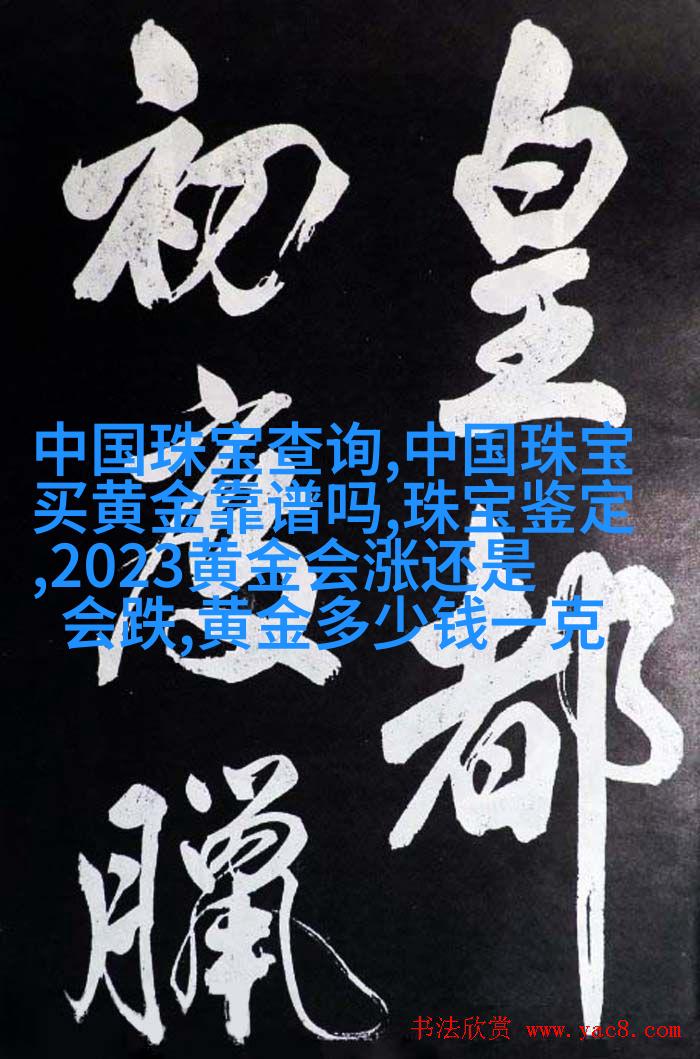 皇都
初度臘
中国珠宝查询,中国珠宝
买黄金靠谱吗,珠宝鉴定
,2023黄金会涨还是
会跌,黄金多少钱一克
书法欣赏 www.yac8.com